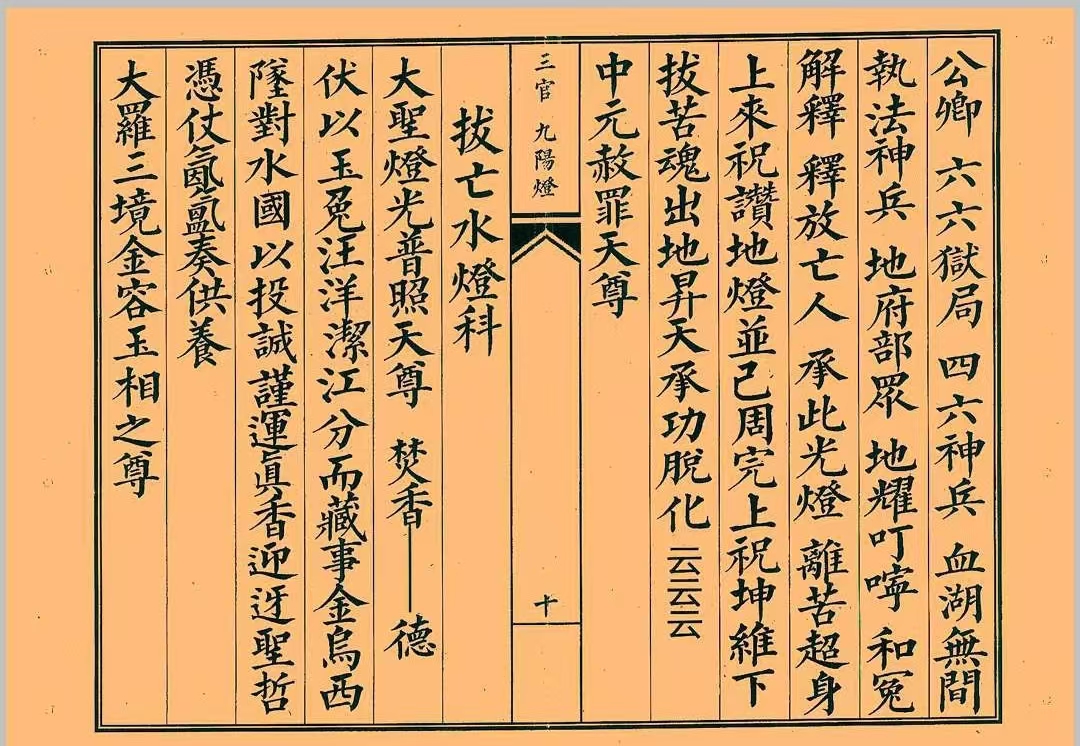 公卿 六六獄局 四六神兵 血湖無間
執法神兵 地府部眾 地耀叮嚀 和冤
解釋 釋放亡人 承此光燈 離苦超身
上來祝讚地燈並已周完上祝坤維下
拔苦魂出地昇天承功脫化云云云
中元赦罪天尊
三官 九陽燈
十
拔亡水燈科
大聖燈光普照天尊 焚香——德
伏以玉兔汪洋潔江分而藏事金烏西
墜對水國以投誠謹運眞香迎迓聖哲
憑仗氤氳奏供養
大羅三境金容玉相之尊